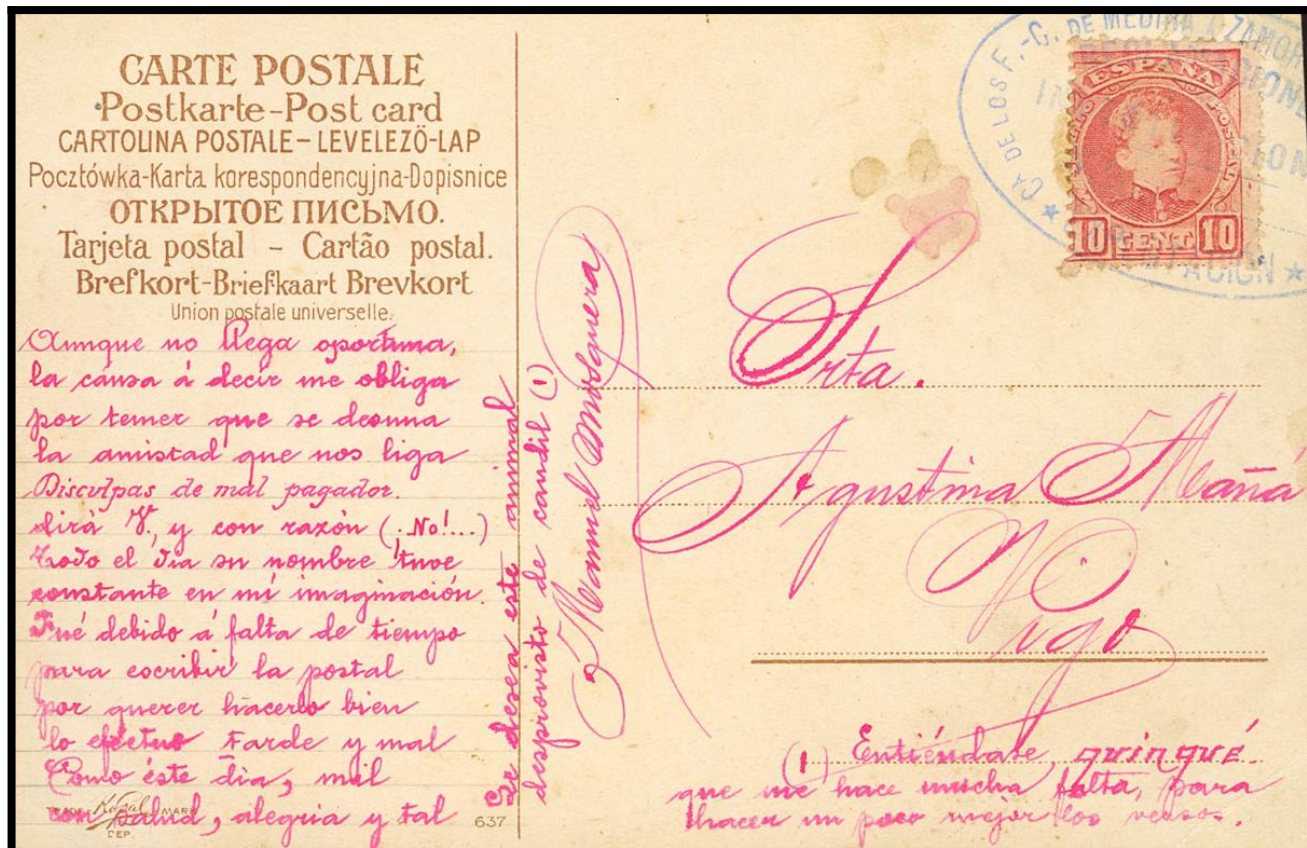 CARTE POSTALE
Postkarte-Post card
CARTOLINA POSTALE-LEVELEZÖ-LAP
Pocztówka-Karta korespondencyjna-Dopisnice
ОТКРЫТОЕ ПИСЬМО.
Tarjeta postal - Cartão postal.
Brefkort-Briefkaart Brevkort
Union postale universelle.
Aunque no llega oportuna,
la causa á decir me obliga
por temer que se desuna
la amistad que nos liga
Disculpas de mal pagador.
dirá V., y con razón (¡No!...)
Todo el día su nombre tuve
constante en mi imaginación.
Fué debido á falta de tiempo
para escribir la postal
por querer hacerlo bien
lo efectuo tarde y mal
Como éste día, mil
con salud, alegria y tal
TRADE MARK
DEP.
637
Se desea este animal
desprovisto de candil (1)
Manuel Mosquera
Srta.
Agustina Mañá
Vigo
(1) Entiéndase, quinqué.
que me hace mucha falta, para
hacer un poco mejor los versos.
Cª DE LOS F.-C. DE MEDINA A ZAMOR
ESPAÑA
10 CENT. 10